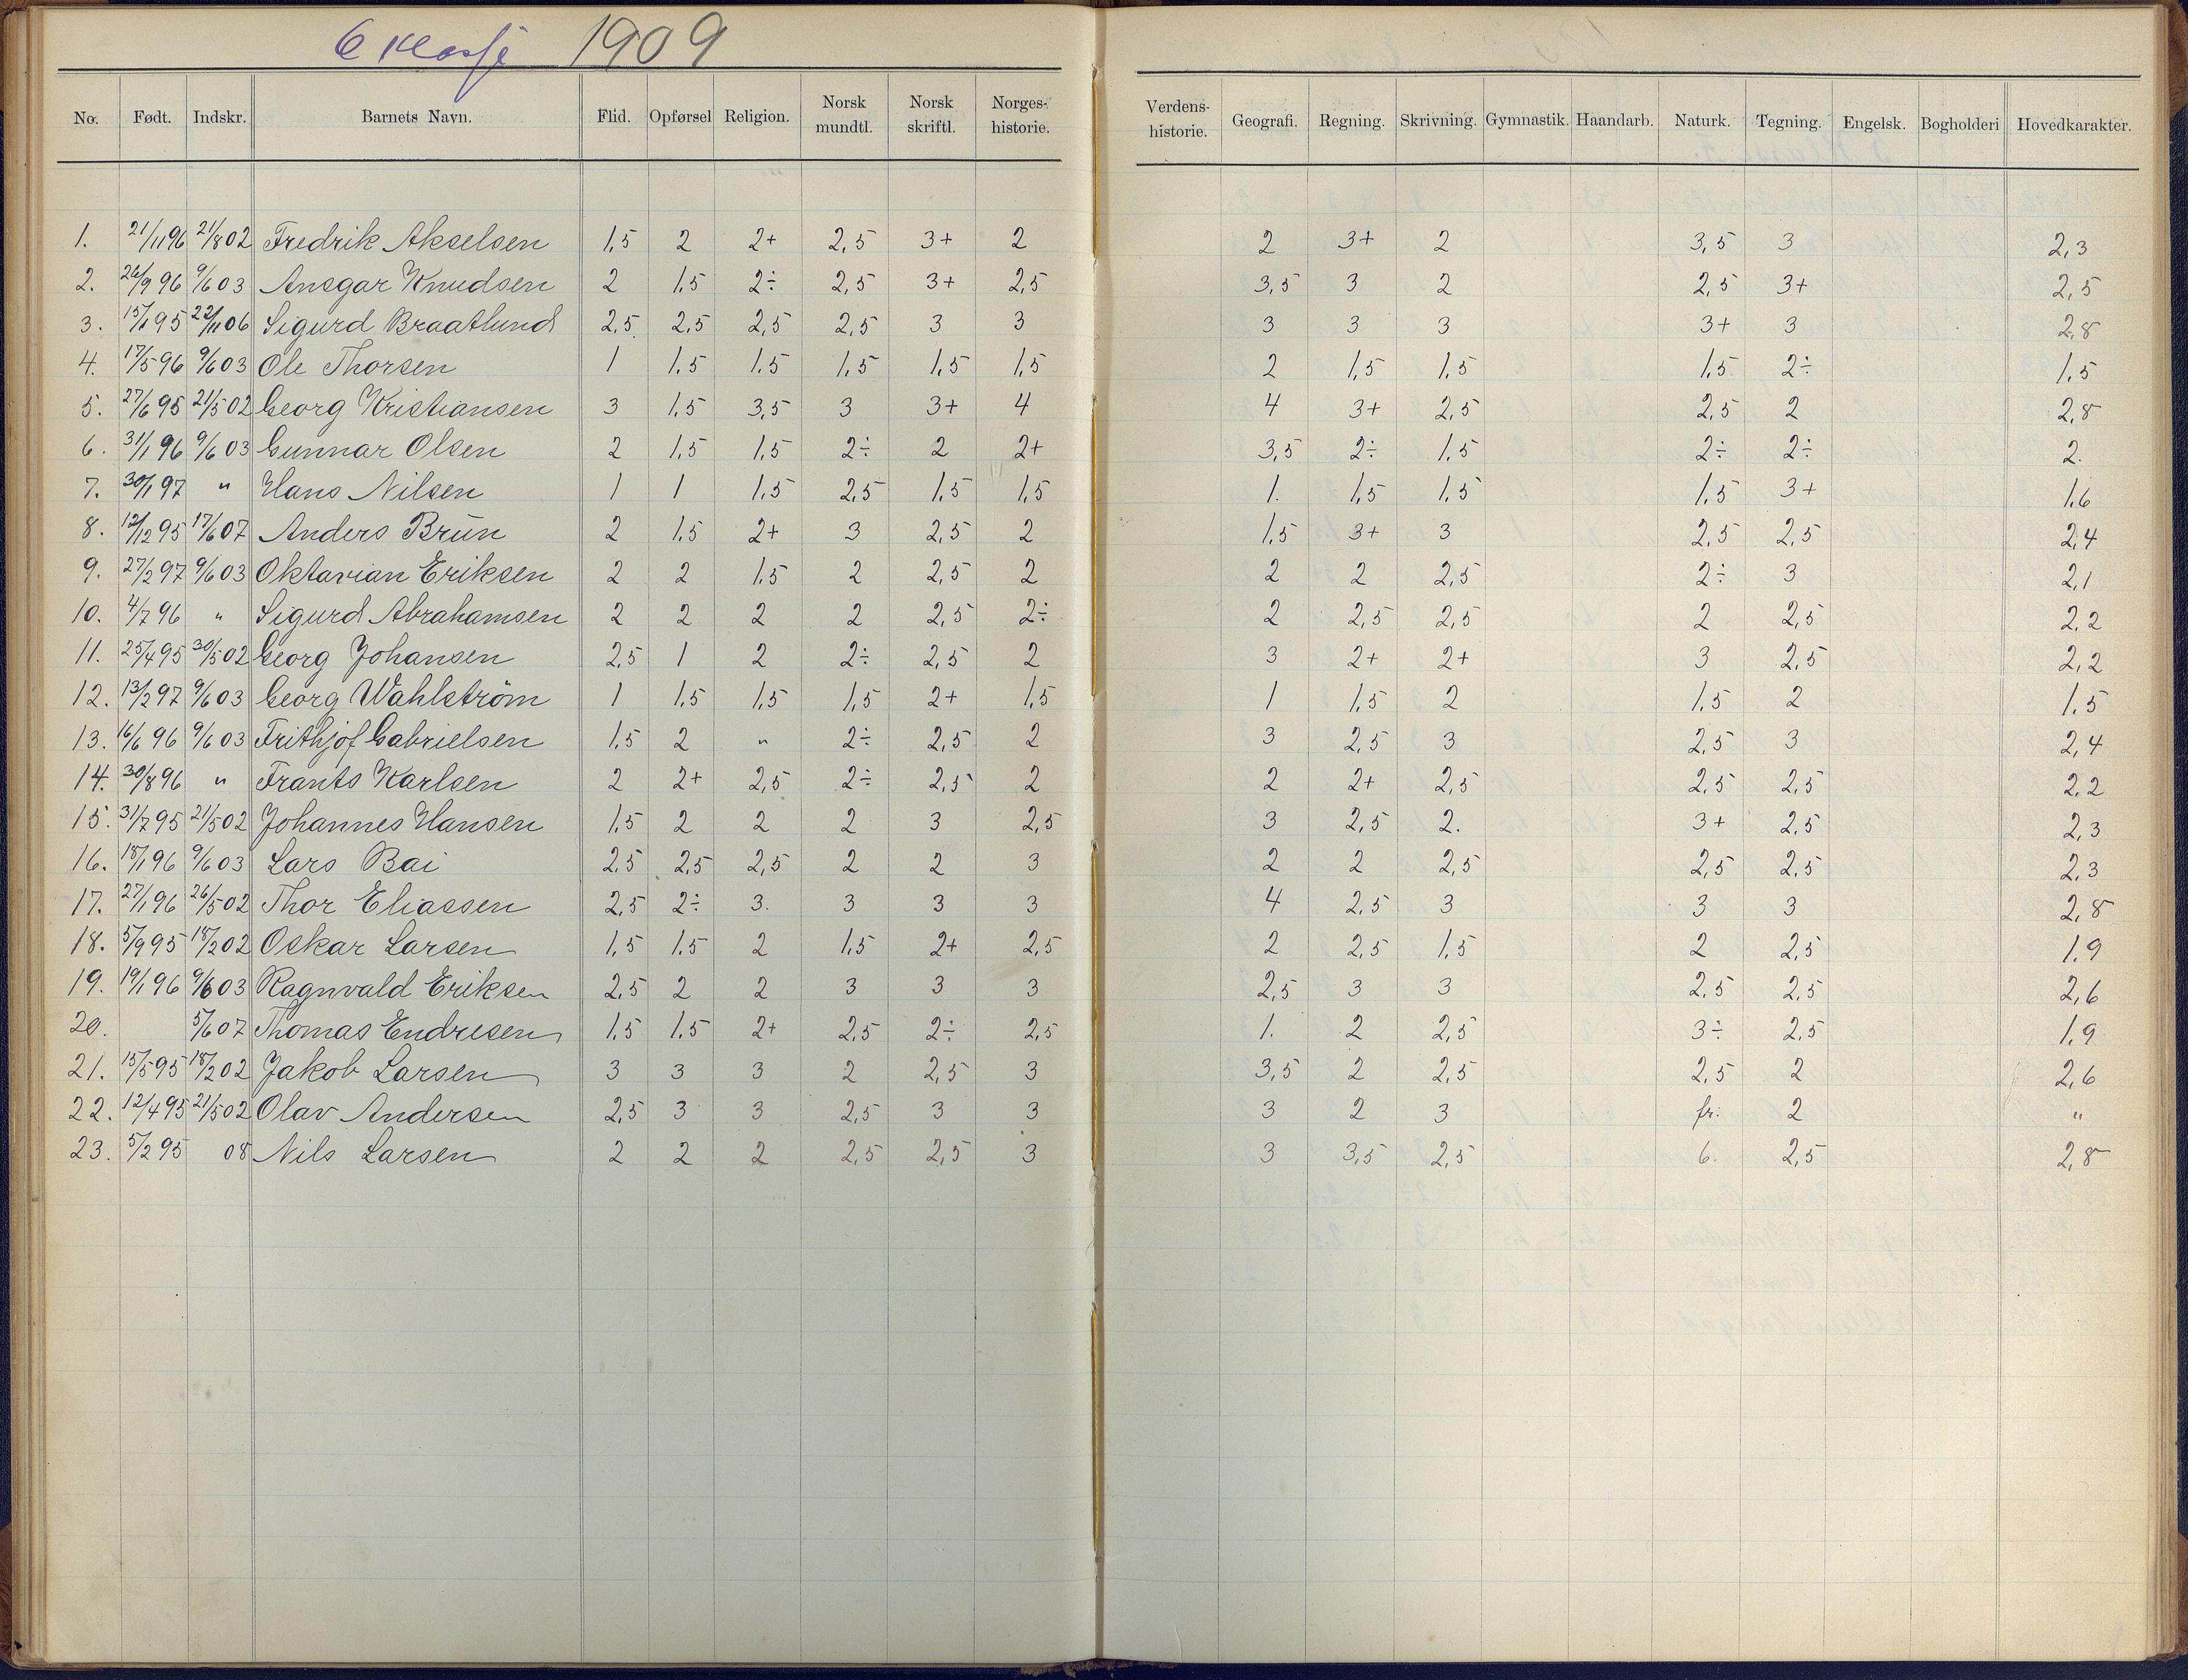 6 Klasse 1909
No. Født. Indskr. Barnets Navn. Flid. Opførsel Religion. Norsk mundtl. Norsk skriftl. Norges-historie. Verdens-historie. Geografi. Regning. Skrivning. Gymnastik. Haandarb. Naturk. Tegning. Engelsk. Bogholderi Hovedkarakter.
1. 21/11 96 21/8 02 Fredrik Akselsen 1,5 2 2+ 2,5 3+ 2 2 3+ 2 3,5 3 2,3
2. 26/9 96 9/6 03 Ansgar Knudsen 2 1,5 2÷ 2,5 3+ 2,5 3,5 3 2 2,5 3+ 2,5
3. 15/1 95 22/11 06 Sigurd Braatlund 2,5 2,5 2,5 2,5 3 3 3 3 3 3+ 3 2,8
4. 17/5 96 9/6 03 Ole Thorsen 1 1,5 1,5 1,5 1,5 1,5 2 1,5 1,5 1,5 2÷ 1,5
5. 27/6 95 21/5 02 Georg Kristiansen 3 1,5 3,5 3 3+ 4 4 3+ 2,5 2,5 2 2,8
6. 31/1 96 9/6 03 Gunnar Olsen 2 1,5 1,5 2÷ 2 2+ 3,5 2÷ 1,5 2÷ 2÷ 2.
7. 30/1 97 " Hans Nilsen 1 1 1,5 2,5 1,5 1,5 1. 1,5 1,5 1,5 3+ 1,6
8. 12/12 95 17/6 07 Anders Brün 2 1,5 2+ 3 2,5 2 1,5 3+ 3 2,5 2,5 2,4
9. 27/2 97 9/6 03 Oktavian Eriksen 2 2 1,5 2 2,5 2 2 2 2,5 2÷ 3 2,1
10. 4/7 96 " Sigurd Abrahamsen 2 2 2 2 2,5 2÷ 2 2,5 2,5 2 2,5 2,2
11. 25/4 95 30/5 02 Georg Johansen 2,5 1 2 2÷ 2,5 2 3 2+ 2+ 3 2,5 2,2
12. 13/2 97 9/6 03 Georg Wahlström 1 1,5 1,5 1,5 2+ 1,5 1 1,5 2 1,5 2 1,5
13. 16/6 96 9/6 03 Frithjof Gabrielsen 1,5 2 " 2÷ 2,5 2 3 2,5 3 2,5 3 2,4
14. 30/8 96 " Frants Karlsen 2 2+ 2,5 2÷ 2,5 2 2 2+ 2,5 2,5 2,5 2,2
15. 31/7 95 21/5 02 Johannes Hansen 1,5 2 2 2 3 2,5 3 2,5 2. 3+ 2,5 2,3
16. 18/1 96 9/6 03 Lars Bai 2,5 2,5 2,5 2 2 3 2 2 2,5 2,5 2,5 2,3
17. 27/1 96 26/5 02 Thor Eliassen 2,5 2÷ 3. 3 3 3 4 2,5 3 3 3 2,8
18. 5/9 95 18/2 02 Oskar Larsen 1,5 1,5 2 1,5 2+ 2,5 2 2,5 1,5 2 2,5 1,9
19. 19/1 96 9/6 03 Ragnvald Eriksen 2,5 2 2 3 3 3 2,5 3 3 2,5 2,5 2,6
20. 5/6 07 Thomas Endresen 1,5 1,5 2+ 2,5 2÷ 2,5 1. 2 2,5 3÷ 2,5 1,9
21. 15/5 95 18/2 02 Jakob Larsen 3 3 3 2 2,5 3 3,5 2 2,5 2,5 2 2,6
22. 12/4 95 21/5 02 Olav Andersen 2,5 3 3 2,5 3 3 3 2 3 fr: 2 "
23. 5/2 95 08 Nils Larsen 2 2 2 2,5 2,5 3 3 3,5 2,5 6. 2,5 2,8